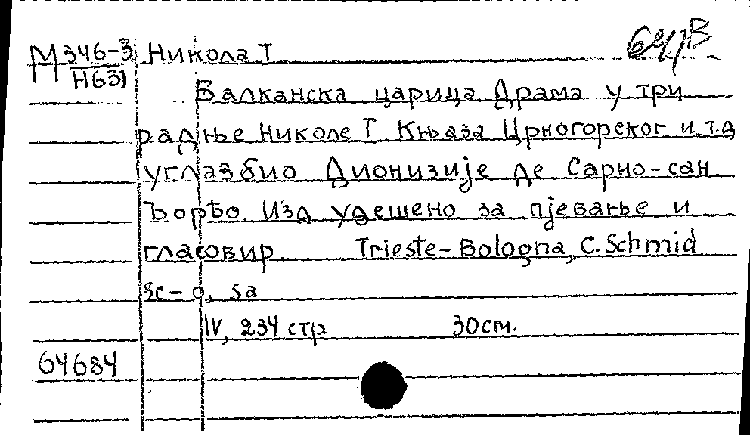 М346-3 Никола I 64/В
Н631
Балканска царица. Драма у три
радње Николе I Књаза Црногорског и.т.д
углазбио Дионизије де Сарно-сан
Ђорђо. Изд удешено за пјевање и
гласовир. Trieste-Bologna, C. Schmid
sc-o, sa
IV, 234 стр 30cm.
64684